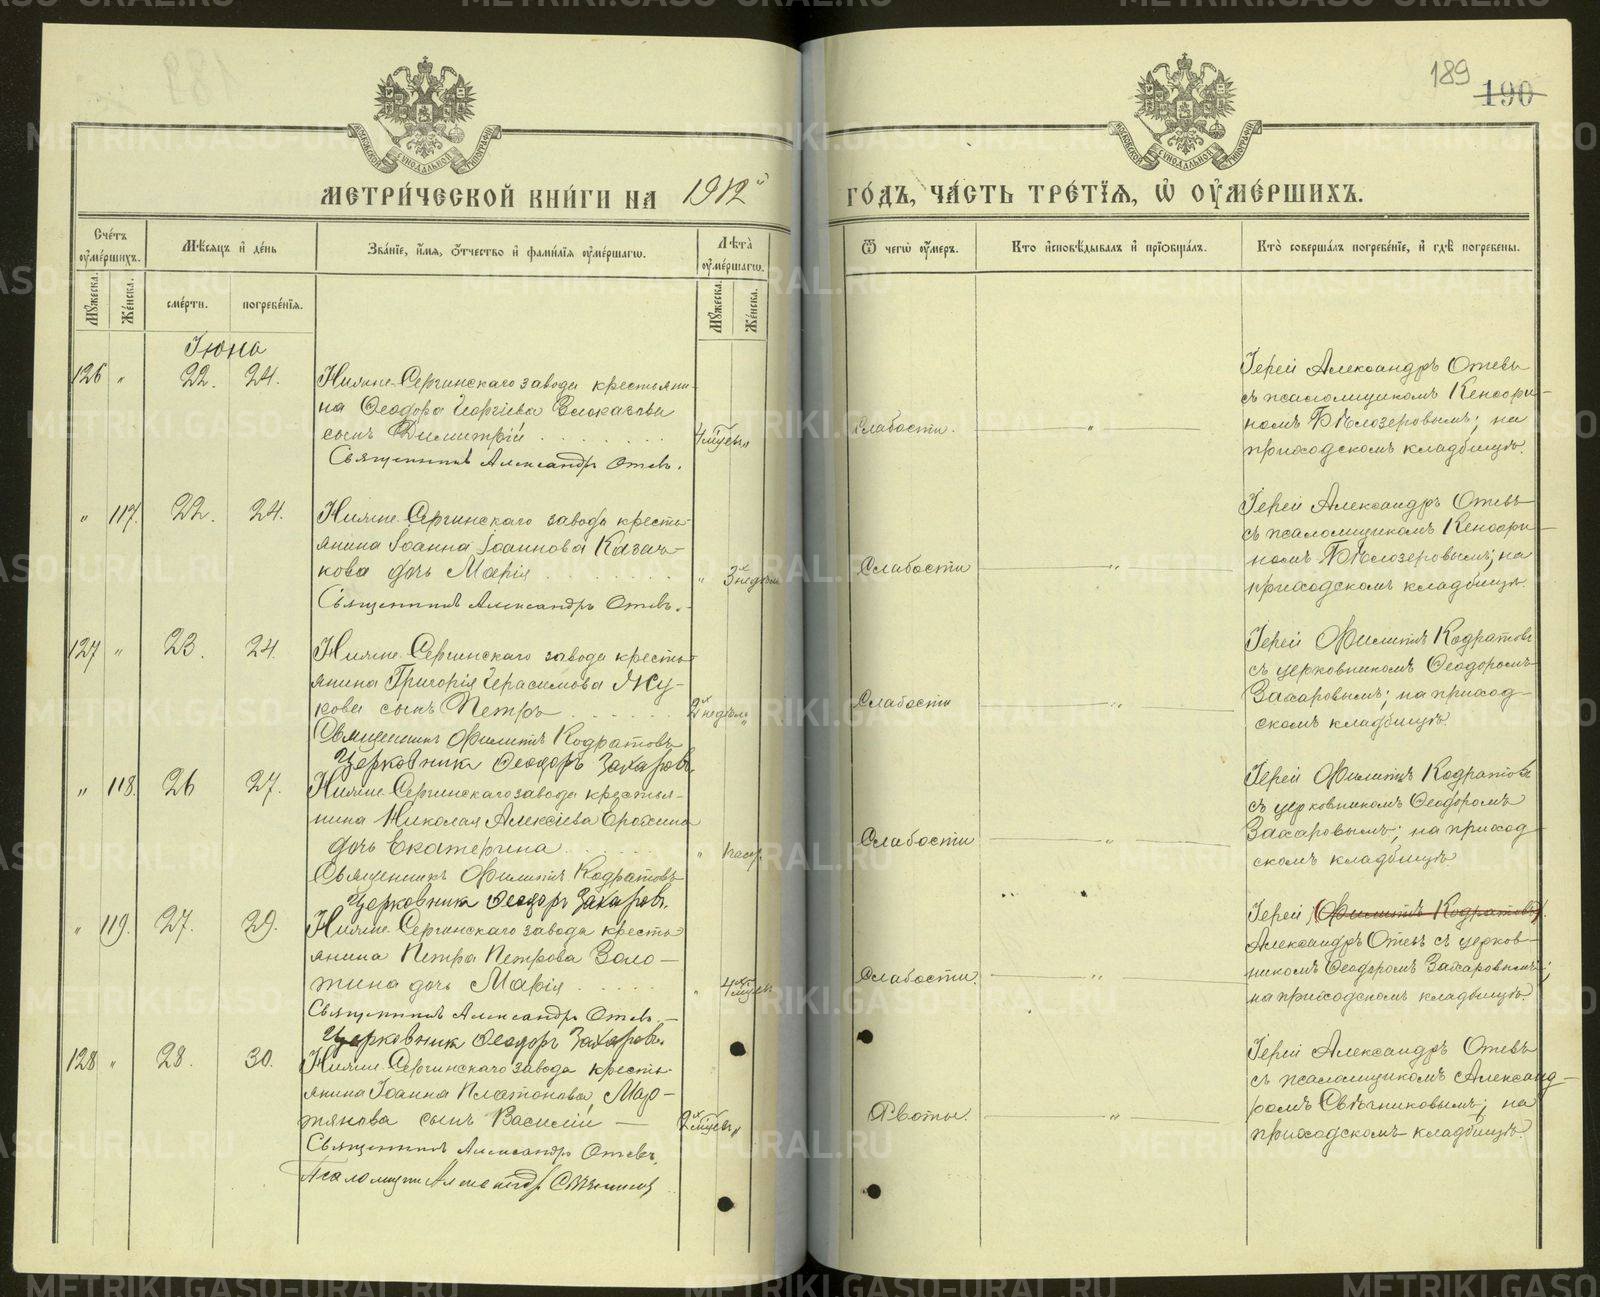 189
190
МЕТРИ́ЧЕСКОЙ КНИ́ГИ НА 1912й
ГО́ДЪ, ЧА́СТЬ ТРЕ́ТЇѦ, Ѡ ОУМЕ́РШИХЪ.
Сче́тъ оуме́ршихъ.
Мѣсѧцъ и де́нь
Зва́нїе, и́мѧ, ѻ́тчество и фами́лїѧ оуме́ршагѡ.
Лѣта оуме́ршагѡ.
Ѿ чегѡ оу́меръ.
Кто исповѣ́дывалъ и прїѡбща́лъ.
Кто̀ соверша́лъ погребе́нїе, и гдѣ̀ погребены.
Мꙋ́жеска.
Же́нска.
сме́рти.
погребе́нїѧ.
Мꙋ́жеска.
Же́нска.
Іюня
126 " 22. 24.
Нижне-Сергинскаго завода крестьяни-
на Ѳеодора Георгіева
сынъ Димитрій
4 мѣс.
Священникъ Александръ Отевъ.
Слабости. "
Іерей Александръ Отевъ
съ псаломщикомъ Кенсори-
номъ Бѣлозеровымъ; на
приходскомъ кладбищѣ.
" 117. 22. 24.
Нижне-Сергинскаго завода кресть-
янина Іоанна Іоаннова Казач-
кова дочь Марія
" 3 недѣли
Священникъ Александръ Отевъ.
Слабости "
Іерей Александръ Отевъ
съ псаломщикомъ Кенсори-
номъ Бѣлозеровымъ; на
приходскомъ кладбищѣ.
127 " 23. 24.
Нижне-Сергинскаго завода кресть-
янина Григорія Герасимова Жу-
кова сынъ Петръ
2 недѣль "
Священникъ Филиппъ Кодратовъ
Церковникъ Ѳеодоръ Захаровъ.
Слабости "
Іерей Филиппъ Кодратовъ
съ церковникомъ Ѳеодоромъ
Захаровымъ; на приход-
скомъ кладбищѣ.
" 118. 26 27.
Нижне-Сергинскаго завода крестья-
нина Николая Алексіева Ерохина
дочь Екатерина
"
Священникъ Филиппъ Кодратовъ
Церковникъ Ѳеодоръ Захаровъ.
Слабости "
Іерей Филиппъ Кодратовъ
съ церковникомъ Ѳеодоромъ
Захаровымъ; на приход-
скомъ кладбищѣ
" 119. 27. 29.
Нижне-Сергинскаго завода кресть-
янина Петра Петрова Золо-
тина дочь Марія
" 4 мѣс.
Священникъ Александръ Отевъ.
Церковникъ Ѳеодоръ Захаровъ.
Слабости. "
Іерей (Филиппъ Кодратовъ).
Александръ Отевъ съ церков-
никомъ Ѳеодоромъ Захаровымъ;
на приходскомъ кладбищѣ.
128 " 28. 30.
Нижне-Сергинскаго завода кресть-
янина Іоанна Платонова Мар-
тянова сынъ Василій
2 мѣс. "
Священникъ Александръ Отевъ.
Псаломщикъ Александръ Свѣчниковъ
Рвоты. "
Іерей Александръ Отевъ
съ псаломщикомъ Александ-
ромъ Свѣчниковымъ; на
приходскомъ кладбищѣ.
METRIKI.GASO-URAL.RU